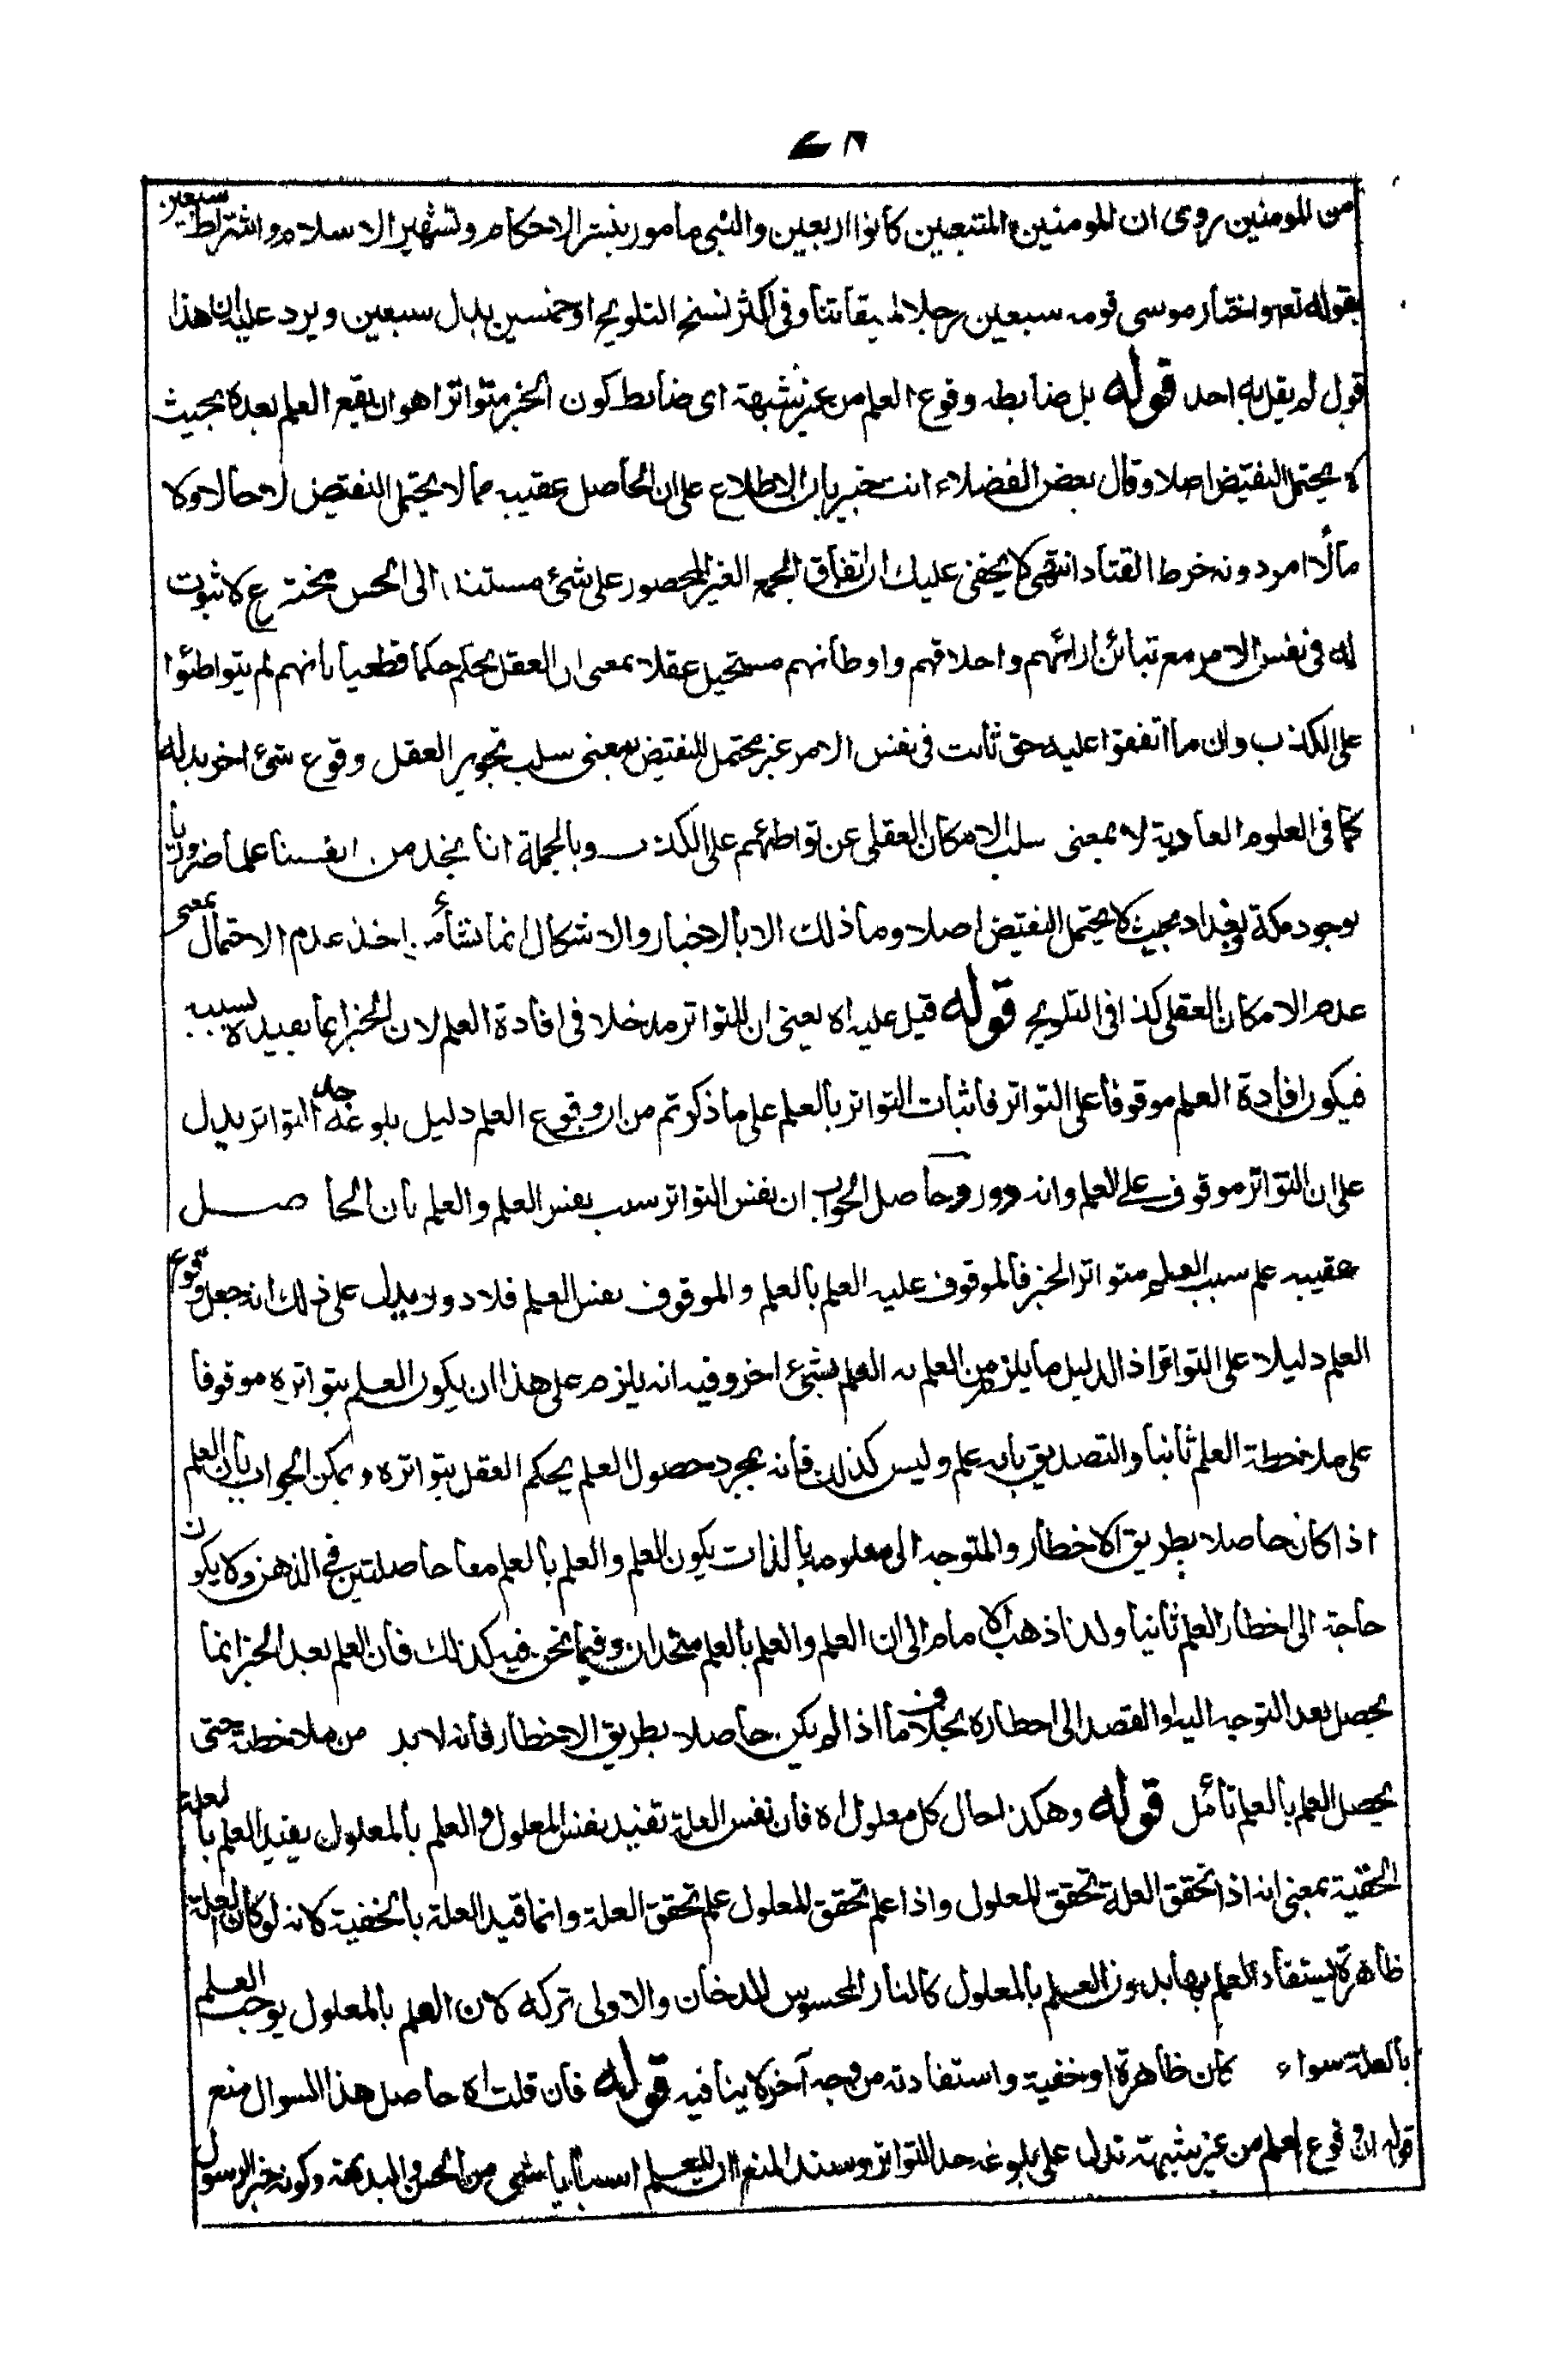 من المومنين روى ان المومنين المتتبعين كانوا اربعين والنبى مامور بنشر الاحكام وتشهير الاسلام واشتراط سبعين
بقوله تعم واختار موسى قومه سبعين رجلا لميقاتنا وفى اكثر نسخ التلويح او خمسين بدل سبعين ويرد عليه ان هذا
قول لم يقل به احد قوله بل ضابطه وقوع العلم من غير شبهة اى ضابط كون الخبر متواترا هو ان يقع العلم بعده بحيث
لا يحتمل النقيض اصلا وقال بعض الفضلاء انت خبير بان الاطلاع على ان الحاصل عقيبه مما لا يحتمل النقيض لا حالا ولا
مآلا امر دونه خرط القتاد انتهى لا يخفى عليك ان اتفاق الجمع الغير المحصور على شئ مستندا الى الحس مخترع لا ثبوت
له فى نفس الامر مع تبائن ارائهم واخلاقهم واوطانهم مستحيل عقلا بمعنى ان العقل يحكم حكما قطعيا بانهم لم يتواطئوا
على الكذب وان ما اتفقوا عليه حق ثابت فى نفس الامر غير محتمل للنقيض بمعنى سلب تجويز العقل وقوع شئ اخر بدله
كما فى العلوم العادية لا بمعنى سلب الامكان العقلى عن تواطئهم على الكذب وبالجملة انا نجد من انفسنا علما ضروريا
بوجود مكة وبغداد بحيث لا يحتمل النقيض اصلا وما ذلك الا بالاخبار والاشكال انما نشأ من اخذ عدم الاحتمال بمعنى
عدم الامكان العقلى كذا فى التلويح قوله قيل عليه اه يعنى ان للتواتر مدخلا فى افادة العلم لان الخبر انما يفيده بسببه
فيكون افادة العلم موقوفا على التواتر فاثبات التواتر بالعلم على ما ذكرتم من ان وقوع العلم دليل بلوغه حد التواتر يدل
على ان التواتر موقوف على العلم وانه دور وحاصل الجواب ان نفس التواتر سبب نفس العلم والعلم بان الحاصل
عقيبه علم سبب العلم متواتر الخبر فالموقوف عليه العلم بالعلم والموقوف نفس العلم فلا دور يدل على ذلك انه جعل وقوع
العلم دليلا على التواتر اذ الدليل ما يلزم من العلم به العلم بشئ اخر وفيه انه يلزم على هذا ان يكون العلم بتواتره موقوفا
على ملاحظة العلم ثانيا والتصديق بانه علم وليس كذلك فانه بمجرد حصول العلم يحكم العقل بتواتره ويمكن الجواب بان العلم
اذا كان حاصلا بطريق الاخطار والمتوجه الى معلومه بالذات يكون العلم والعلم بالعلم معا حاصلتين فى الذهن ولا يكون
حاجة الى اخطار العلم ثانيا ولذا ذهب الامام الى ان العلم والعلم بالعلم متحدان وفيما نحن فيه كذلك فان العلم بعد الخبر انما
يحصل بعد التوجه اليه والقصد الى احطاره بخلاف ما اذا لم يكن حاصلا بطريق الاخطار فانه لا بد من ملاحظته حتى
يحصل العلم بالعلم تأمل قوله وهكذا حال كل معلول اه فان نفس العلة تفيد نفس المعلول والعلم بالمعلول يفيد العلم بالعلة
الخفية بمعنى انه اذا تحقق العلة تحقق المعلول واذا علم تحقق المعلول علم تحقق العلة وانما قيد العلة بالخفية لانه لو كان العلة
ظاهرة يستفاد العلم بها بدون العلم بالمعلول كالنار المحسوس للدخان والاولى تركه لان العلم بالمعلول يوجب العلم
بالعلة سواء كان ظاهرة او خفية واستفادته من وجه آخر لا ينافيه قوله فان قلت اه حاصل هذا السوال منع
قوله ان وقوع العلم من غير شبهة تدل على بلوغه حد التواتر وسند المنع ان للعلم اسبابا شتى من الحس والبديهة وكونه خبر الرسول